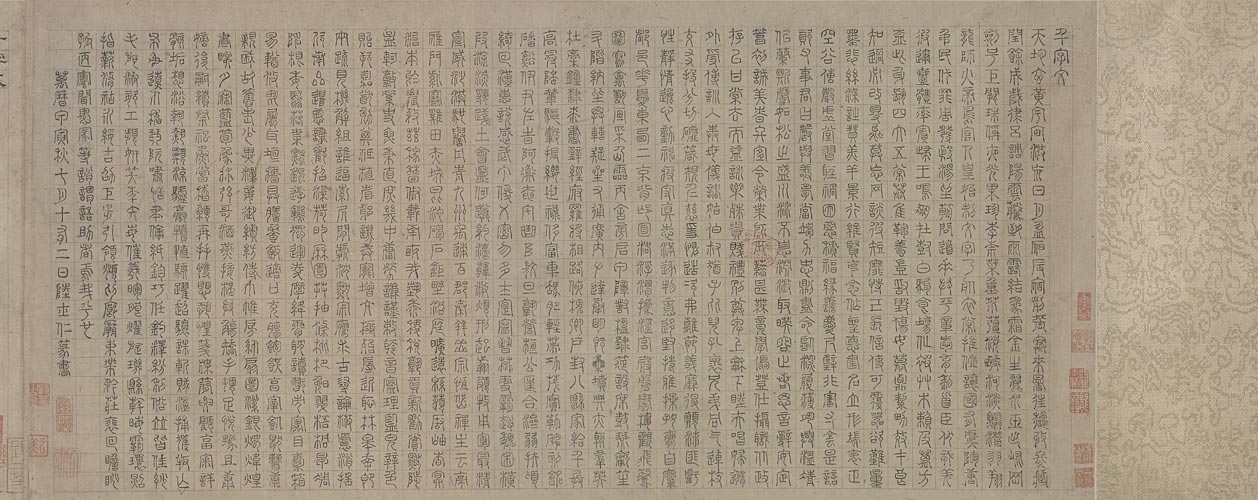 千字文
天地玄黃宇宙洪荒日月盈昃辰宿列張寒來暑往秋收冬藏
閏餘成歲律呂調陽雲騰致雨露結為霜金生麗水玉出崑岡
劍號巨闕珠稱夜光果珍李柰菜重芥薑海鹹河淡鱗潛羽翔
龍師火帝鳥官人皇始制文字乃服衣裳推位讓國有虞陶唐
弔民伐罪周發殷湯坐朝問道垂拱平章愛育黎首臣伏戎羌
遐邇壹體率賓歸王鳴鳳在樹白駒食場化被草木賴及萬方
蓋此身髮四大五常恭惟鞠養豈敢毀傷女慕貞絜男效才良
知過必改得能莫忘罔談彼短靡恃己長信使可覆器欲難量
墨悲絲染詩讚羔羊景行維賢克念作聖德建名立形端表正
空谷傳聲虛堂習聽禍因惡積福緣善慶尺璧非寶寸陰是競
資父事君曰嚴與敬孝當竭力忠則盡命臨深履薄夙興溫凊
似蘭斯馨如松之盛川流不息淵澄取映容止若思言辭安定
篤初誠美慎終宜令榮業所基籍甚無竟學優登仕攝職從政
存以甘棠去而益詠樂殊貴賤禮別尊卑上和下睦夫唱婦隨
外受傅訓入奉母儀諸姑伯叔猶子比兒孔懷兄弟同氣連枝
交友投分切磨箴規仁慈隱惻造次弗離節義廉退顛沛匪虧
性靜情逸心動神疲守真志滿逐物意移堅持雅操好爵自縻
都邑華夏東西二京背邙面洛浮渭據涇宮殿盤鬱樓觀飛驚
圖寫禽獸畫彩仙靈丙舍傍啟甲帳對楹肆筵設席鼓瑟吹笙
陞階納陛弁轉疑星右通廣內左達承明既集墳典亦聚群英
杜稾鍾隸漆書壁經府羅將相路俠槐卿戶封八縣家給千兵
高冠陪輦驅轂振纓世祿侈富車駕肥輕策功茂實勒碑刻銘
磻溪伊尹佐時阿衡奄宅曲阜微旦孰營桓公匡合濟弱扶傾
綺迴漢惠說感武丁俊乂密勿多士寔寧晉楚更霸趙魏困橫
假途滅虢踐土會盟何遵約法韓弊煩刑起翦頗牧用軍最精
宣威沙漠馳譽丹青九州禹跡百郡秦并嶽宗恆岱禪主云亭
雁門紫塞雞田赤城昆池碣石鉅野洞庭曠遠緜邈巖岫杳冥
治本於農務茲稼穡俶載南畝我藝黍稷稅熟貢新勸賞黜陟
孟軻敦素史魚秉直庶幾中庸勞謙謹敕聆音察理鑑貌辨色
貽厥嘉猷勉其祗植省躬譏誡寵增抗極殆辱近恥林皋幸即
兩疏見機解組誰逼索居閒處沈默寂寥求古尋論散慮逍遙
欣奏累遣慼謝歡招渠荷的歷園莽抽條枇杷晚翠梧桐早凋
陳根委翳落葉飄颻遊鵾獨運凌摩絳霄耽讀翫市寓目囊箱
易輶攸畏屬耳垣牆具膳餐飯適口充腸飽飫烹宰飢厭糟糠
親戚故舊老少異糧妾御績紡侍巾帷房紈扇圓潔銀燭煒煌
晝眠夕寐藍筍象床弦歌酒讌接杯舉觴矯手頓足悅豫且康
嫡後嗣續祭祀烝嘗稽顙再拜悚懼恐惶牋牒簡要顧答審詳
骸垢想浴執熱願涼驢騾犢特駭躍超驤誅斬賊盜捕獲叛亡
布射遼丸嵇琴阮嘯恬筆倫紙鈞巧任釣釋紛利俗並皆佳妙
毛施淑姿工顰妍笑年矢每催曦暉朗曜璇璣懸斡晦魄環照
指薪修祜永綏吉劭矩步引領俯仰廊廟束帶矜莊徘徊瞻眺
孤陋寡聞愚蒙等誚謂語助者焉哉乎也
萬曆甲寅秋七月十有二日陸士仁篆書